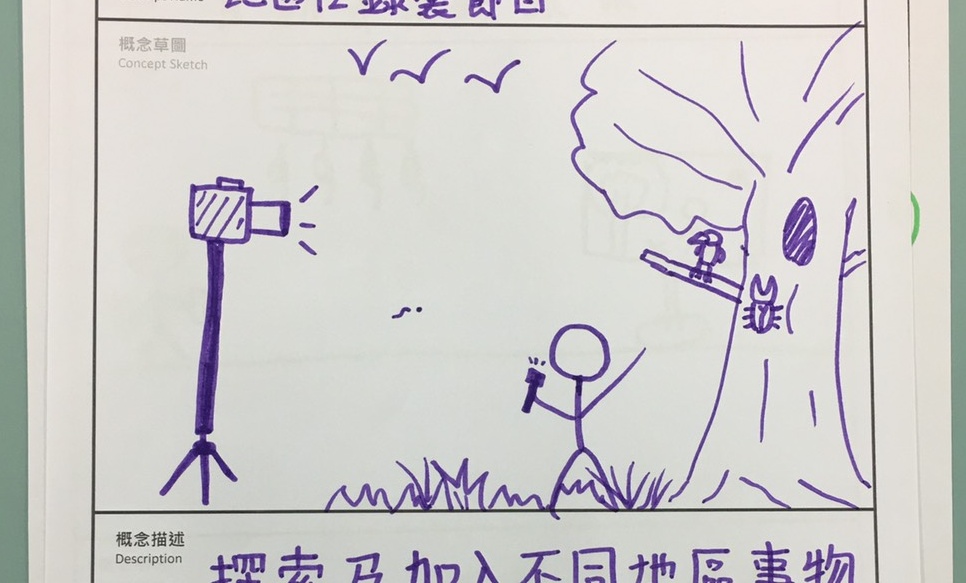 錄製節目
概念草圖
Concept Sketch
概念描述
Description
探索及加入不同地區事物